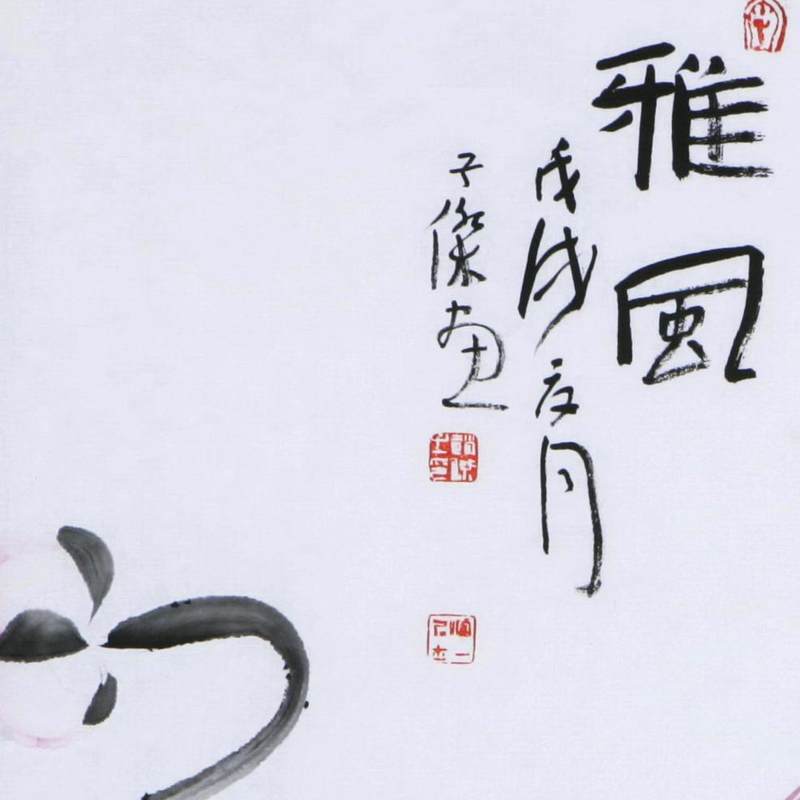 雅風
戊戌夏月
子傑畫